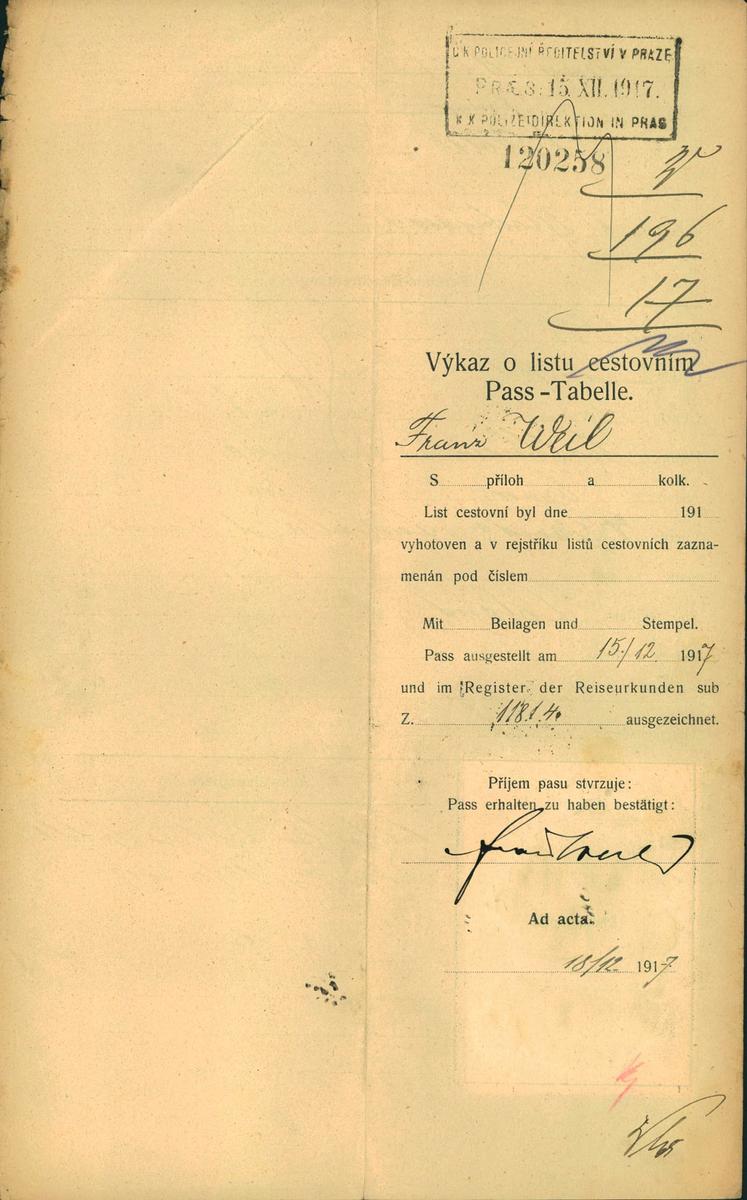 C.K. POLICEJNÍ ŘEDITELSTVÍ V PRAZE
PRAES. 15. XII. 1917.
K. K. POLIZEIDIREKTION IN PRAG
120258
196
17
Výkaz o listu cestovním
Pass-Tabelle.
Franz Weil
S příloh a kolk.
List cestovní byl dne 191
vyhotoven a v rejstříku listů cestovních zazna-
menán pod číslem
Mit Beilagen und Stempel.
Pass ausgestellt am 15./12. 1917
und im Register der Reiseurkunden sub
Z. 11814. ausgezeichnet.
Příjem pasu stvrzuje:
Pass erhalten zu haben bestätigt:
Franz Weil
Ad acta.
18/12. 1917